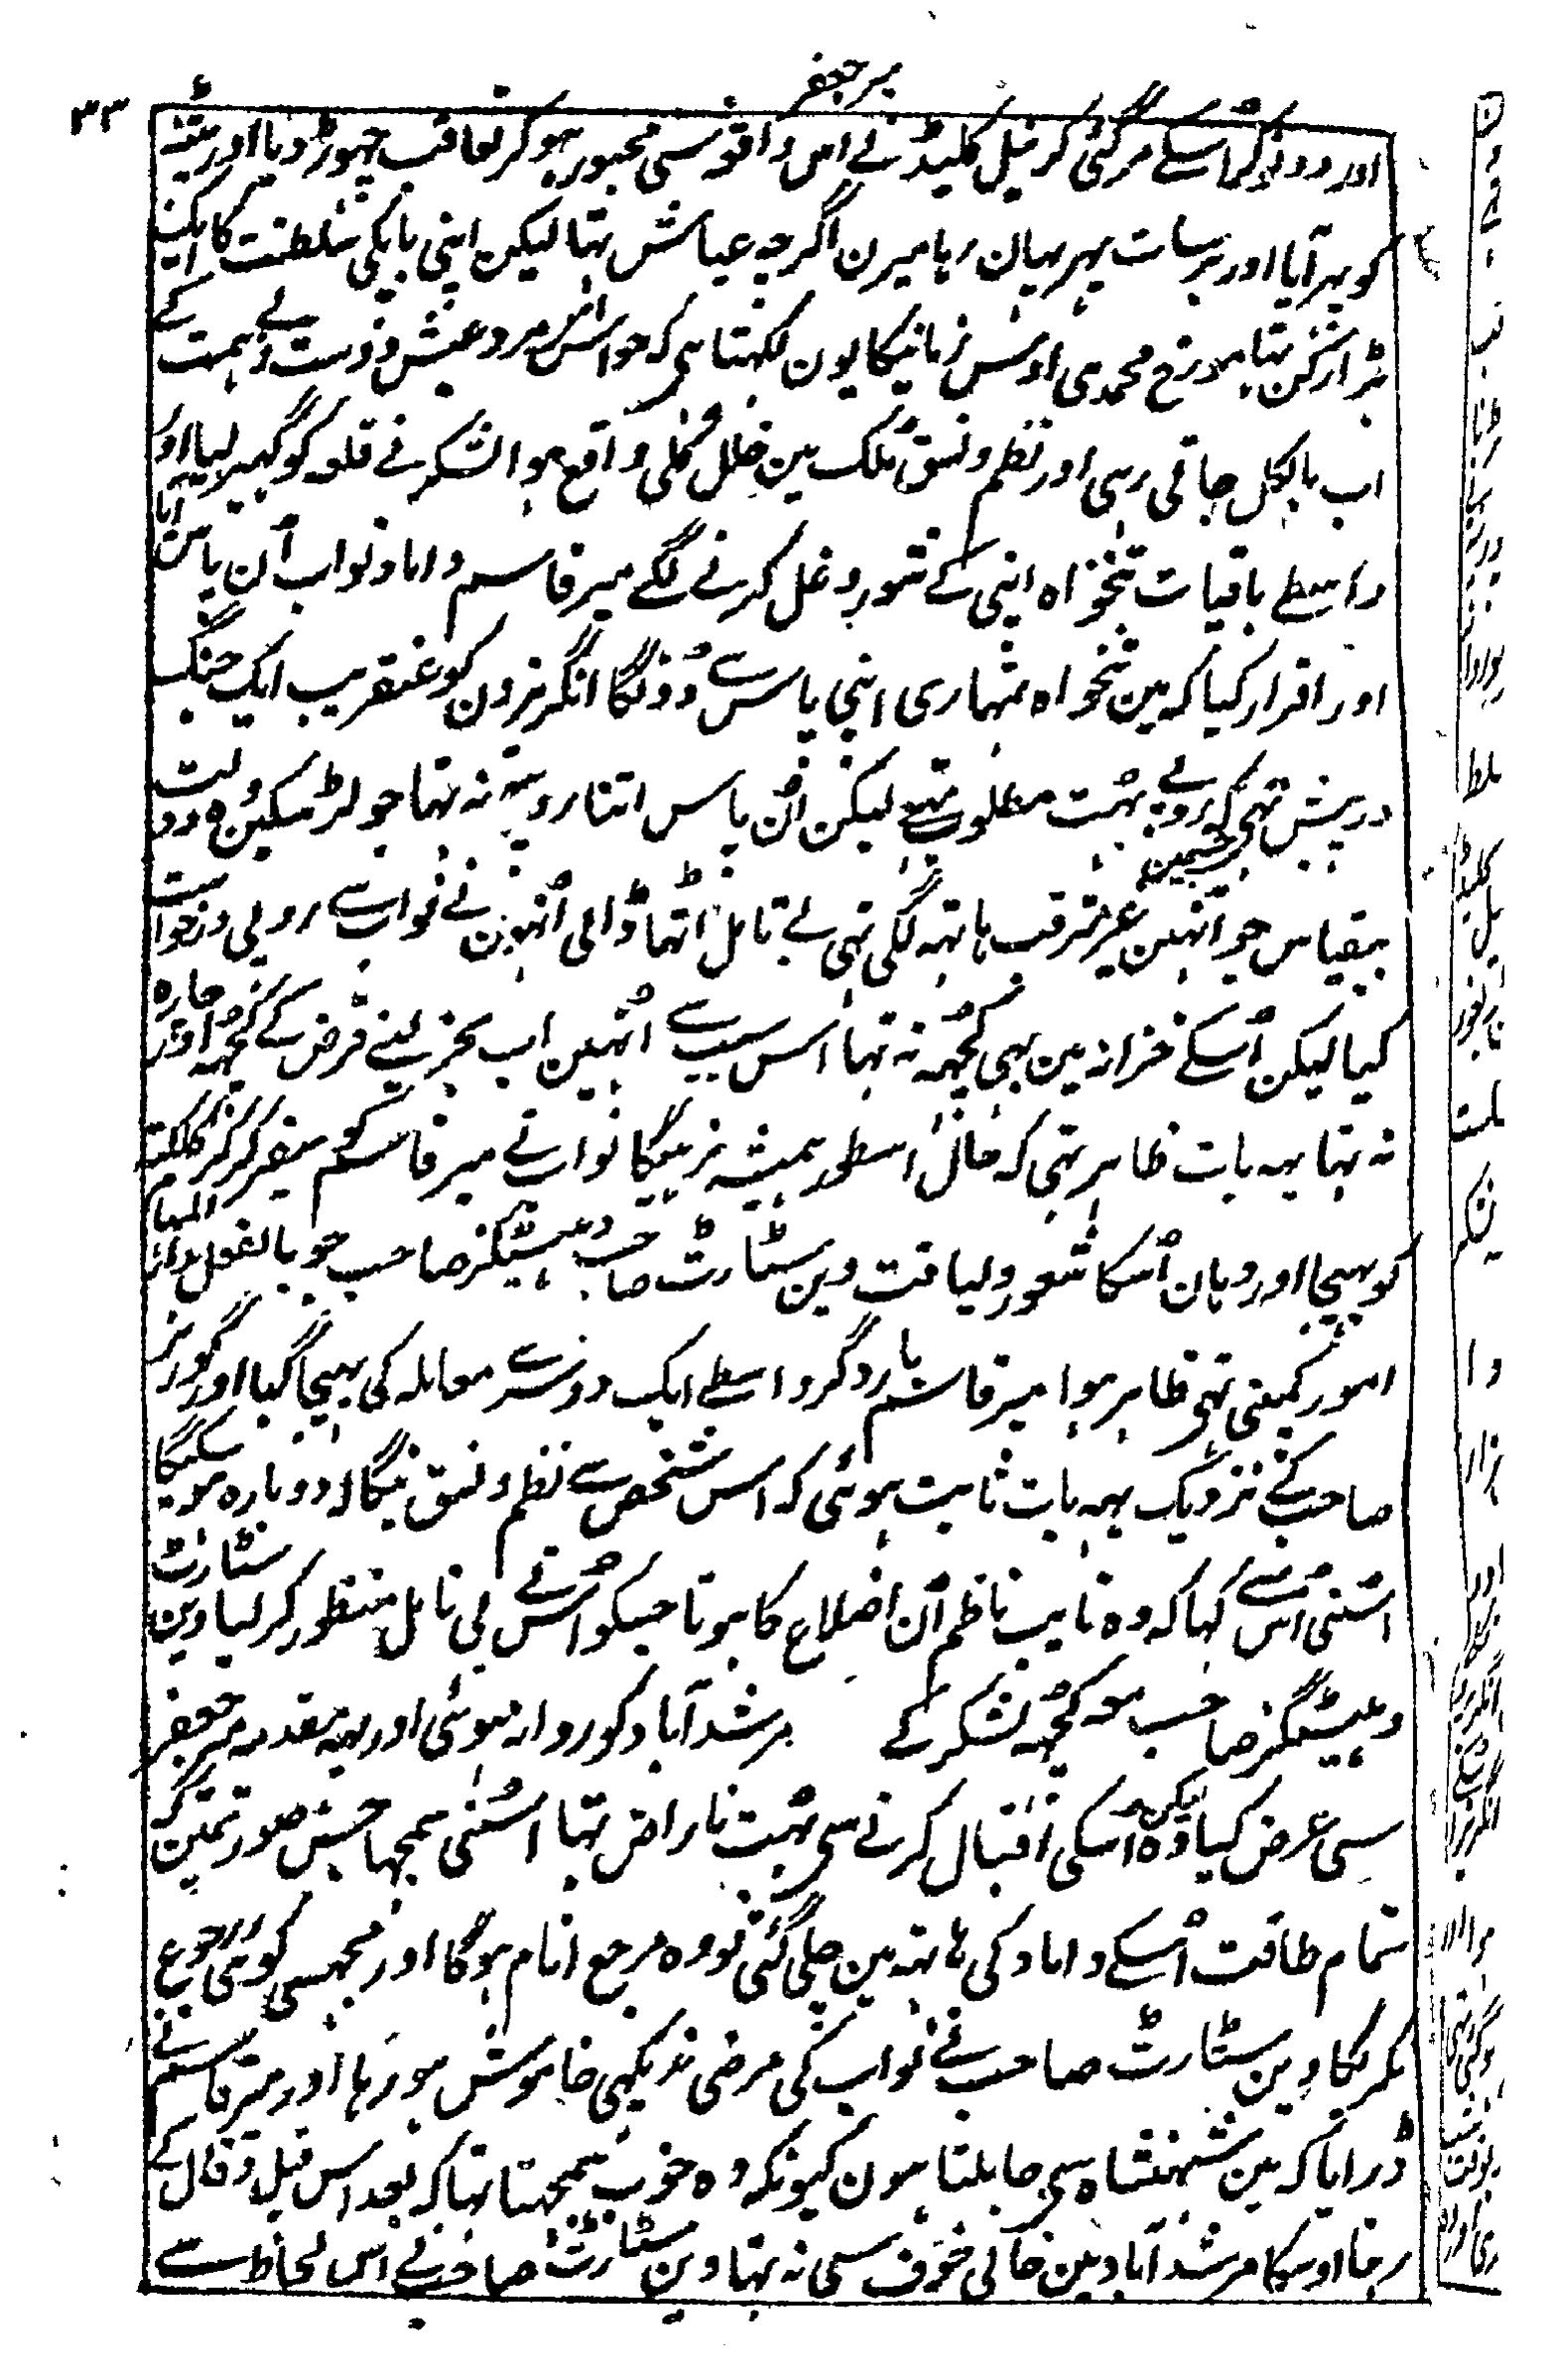 میر جعفر
۳۳
اور دو نوکر اسکے مرگئی کرنیل کلیڈ نے اس واقو سی مجبور ہوکر تعاقب چہوڑ دیا اور پٹنہ
کو پہر آیا اور برسات بہر یہان رہا میرن اگرچہ عیاش تہا لیکن اپنی باپکی سلطنت کا ایک
بڑا رکن تہا مورخ محمدی اوس زمانیکا یون لکہتا ہی کہ حواس اس مرد عیش دوست بے ہمت کے
اب بالکل جاتی رہی اور نظم و نسق ملک مین خلل کلی واقع ہوا لشکر نے قلعہ کو گہیر لیا اور
واسطے باقیات تنخواہ اپنی کے شور و غل کرنے لگے میر قاسم داماد نواب اُن پاس آیا
اور اقرار کیا کہ مین تنخواہ تمہاری اپنی پاس سے دونگا انگریزون کو عنقریب ایک جنگ
درپیش تہی کہ جسمین روپے بہت مطلوب تہے لیکن اُن پاس اتنا روپیہ نہ تہا جو لڑ سکین وہ دولت
بیقیاس جو اُنہین غیر مترقب ہاتہہ لگی تہی بے تامل اُٹہا ڈالی اُنہون نے نواب سے روپی درخواست
کیا لیکن اُسکے خزانہ مین بہی کچہہ نہ تہا اس سبب سے اُنہین اب بجز لینے قرض کے کچہہ اور چارہ
نہ تہا یہہ بات ظاہر تہی کہ حال اسطور ہمیشہ نرہیگا نواب نے میر قاسم کو سفیر کر کر کلکتہ
کو بہیجا اور وہان اُسکا شعور و لیاقت وین سٹارٹ صاحب و ہیسٹنگز صاحب جو بالفعل مدار المہام
امور کمپنی تہی ظاہر ہوا میر قاسم بار دگر واسطے ایک دوسرے معاملہ کی بہیجا گیا اور گورنر
صاحب کے نزدیک یہہ بات ثابت ہوئی کہ اس شخص سے نظم و نسق بنگالا دوبارہ ہو سکیگا
اسنی اُس سے کہا کہ وہ نایب ناظم اُن اضلاع کا ہو تا جسکو اُس نے بی تامل منظور کر لیا وین سٹارٹ
و ہیسٹنگز صاحب معہ کچہہ لشکر کے مرشد آباد کو روانہ ہوئی اور یہہ مقدمہ میر جعفر
سی عرض کیا لیکن وہ اُسکی اقبال کرنے سی بہت ناراض تہا اُسنی سمجہا جس صورتمین کہ
تمام طاقت اُسکے داماد کی ہاتہہ مین چلی گئی تو وہ مرجع انام ہوگا اور مجہسی کوئی رجوع
نکریگا وین سٹارٹ صاحب نے نواب کی مرضی ندیکہی خاموش ہو رہا اور میر قاسم نے
ڈرایا کہ مین شہنشاہ سی جا ملتا ہون کیونکہ وہ خوب سمجہتا تہا کہ بعد اس قیل و قال کے
رہنا اوسکا مرشد آباد مین خالی خوف سی نہ تہا وین سٹارٹ صاحب نے اس لحاظ سے